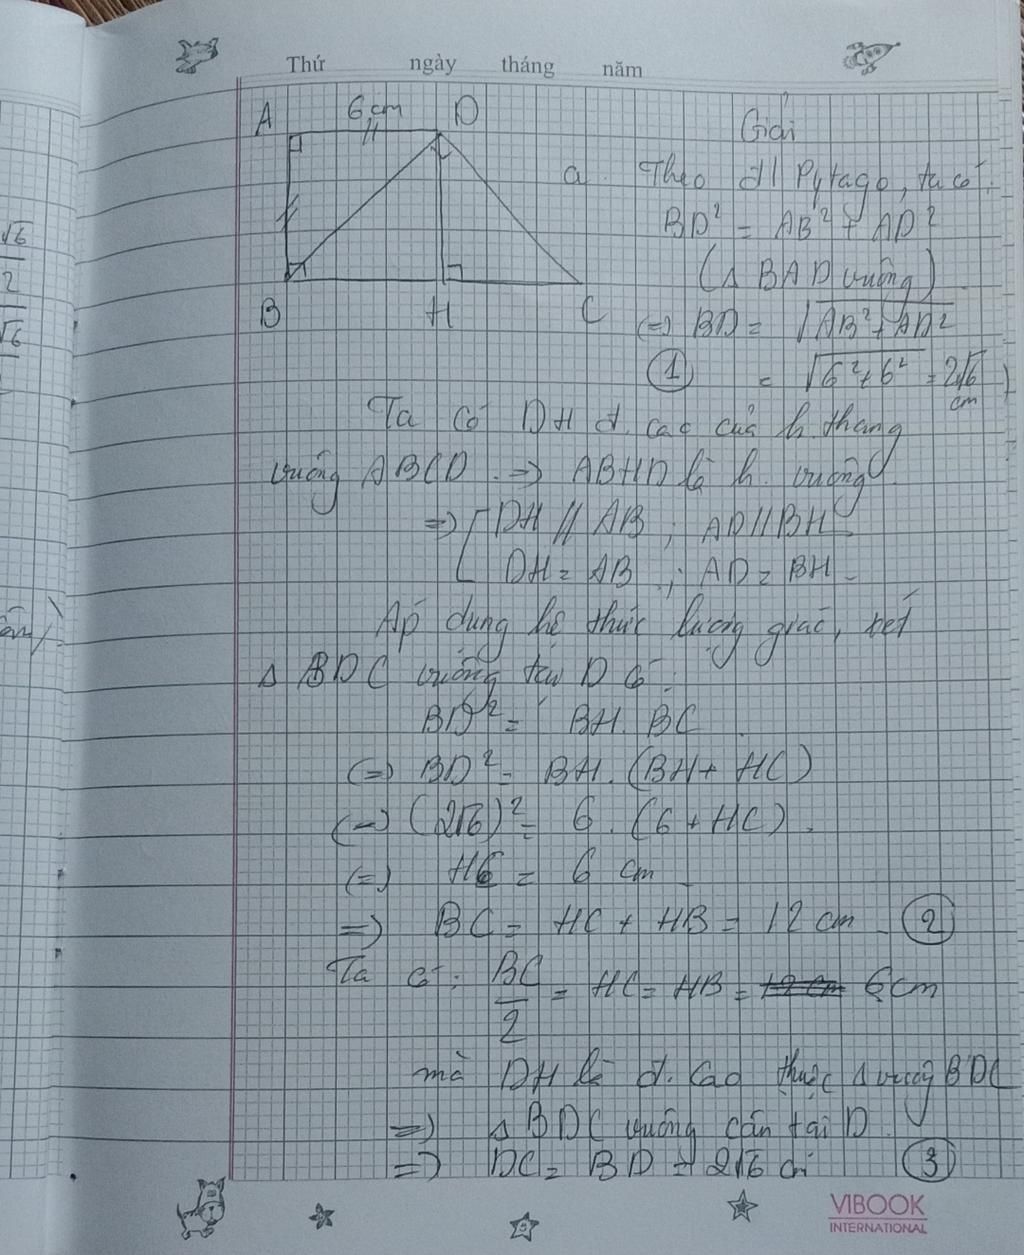 Thứ ngày tháng năm
A 6 cm D
B H C
Giải
a. Theo đl Pytago, ta có:
BD² = AB² + AD²
(Δ BAD vuông)
(=) BD = √AB² + AD²
① = √6² + 6² = 2√6 cm
Ta có DH đ. cao của h. thang
vuông ABCD. => ABHD là h. vuông.
=> [ DH // AB ; AD // BH
DH = AB ; AD = BH
Áp dụng hệ thức lượng giác, xét
Δ BDC vuông tại D có:
BD² = BH. BC
(=) BD² = BH. (BH + HC)
(=) (2√6)² = 6. (6 + HC).
(=) HC = 6 cm
=> BC = HC + HB = 12 cm ②
Ta có: BC/2 = HC = HB = 6cm
mà DH là đ. cao thuộc Δ vuông BDC
=> Δ BDC vuông cân tại D.
=> DC = BD = 2√6 cm ③
VIBOOK
INTERNATIONAL
√6
2
√6